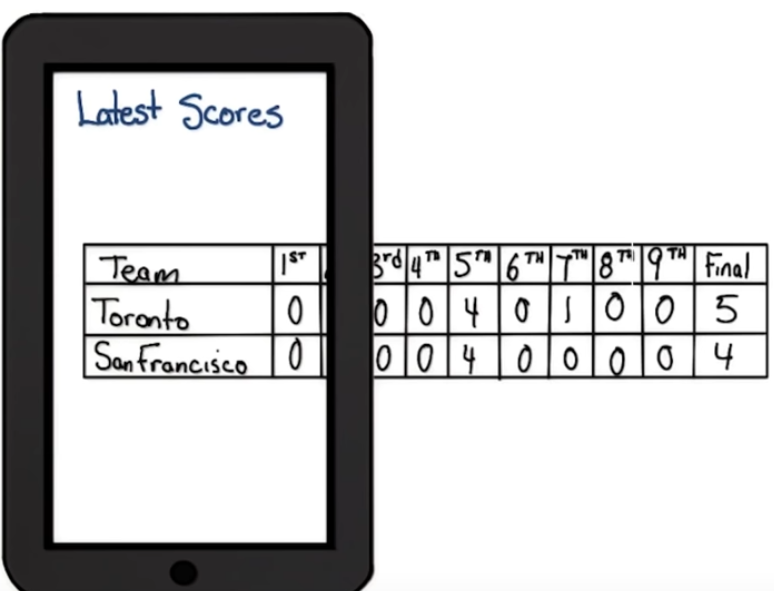 Latest Scores
Team 1ST 3rd 4TH 5TH 6TH 7TH 8TH 9TH Final
Toronto 0 0 0 4 0 1 0 0 5
San Francisco 0 0 0 4 0 0 0 0 4